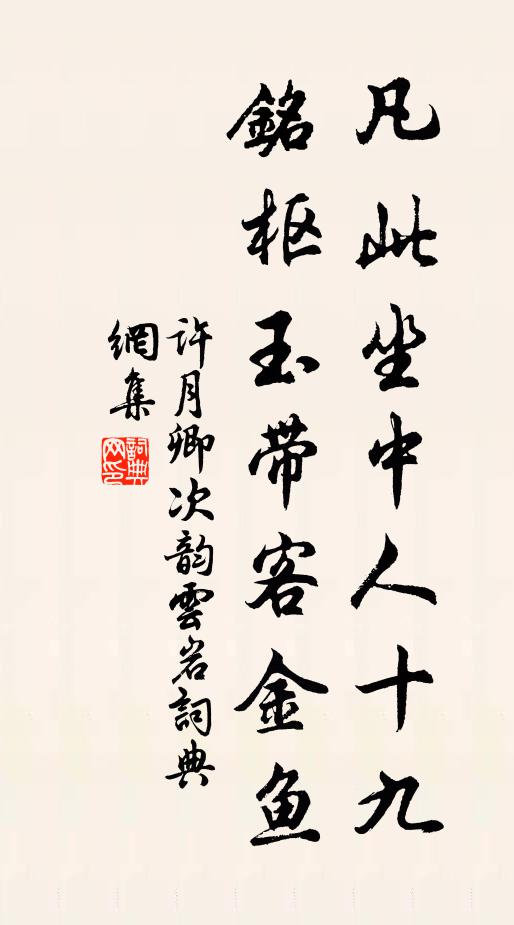 凡此坐中人十九
銘枢玉带客金鱼
許月卿次韵雲岩詞典
網集
詞典網印